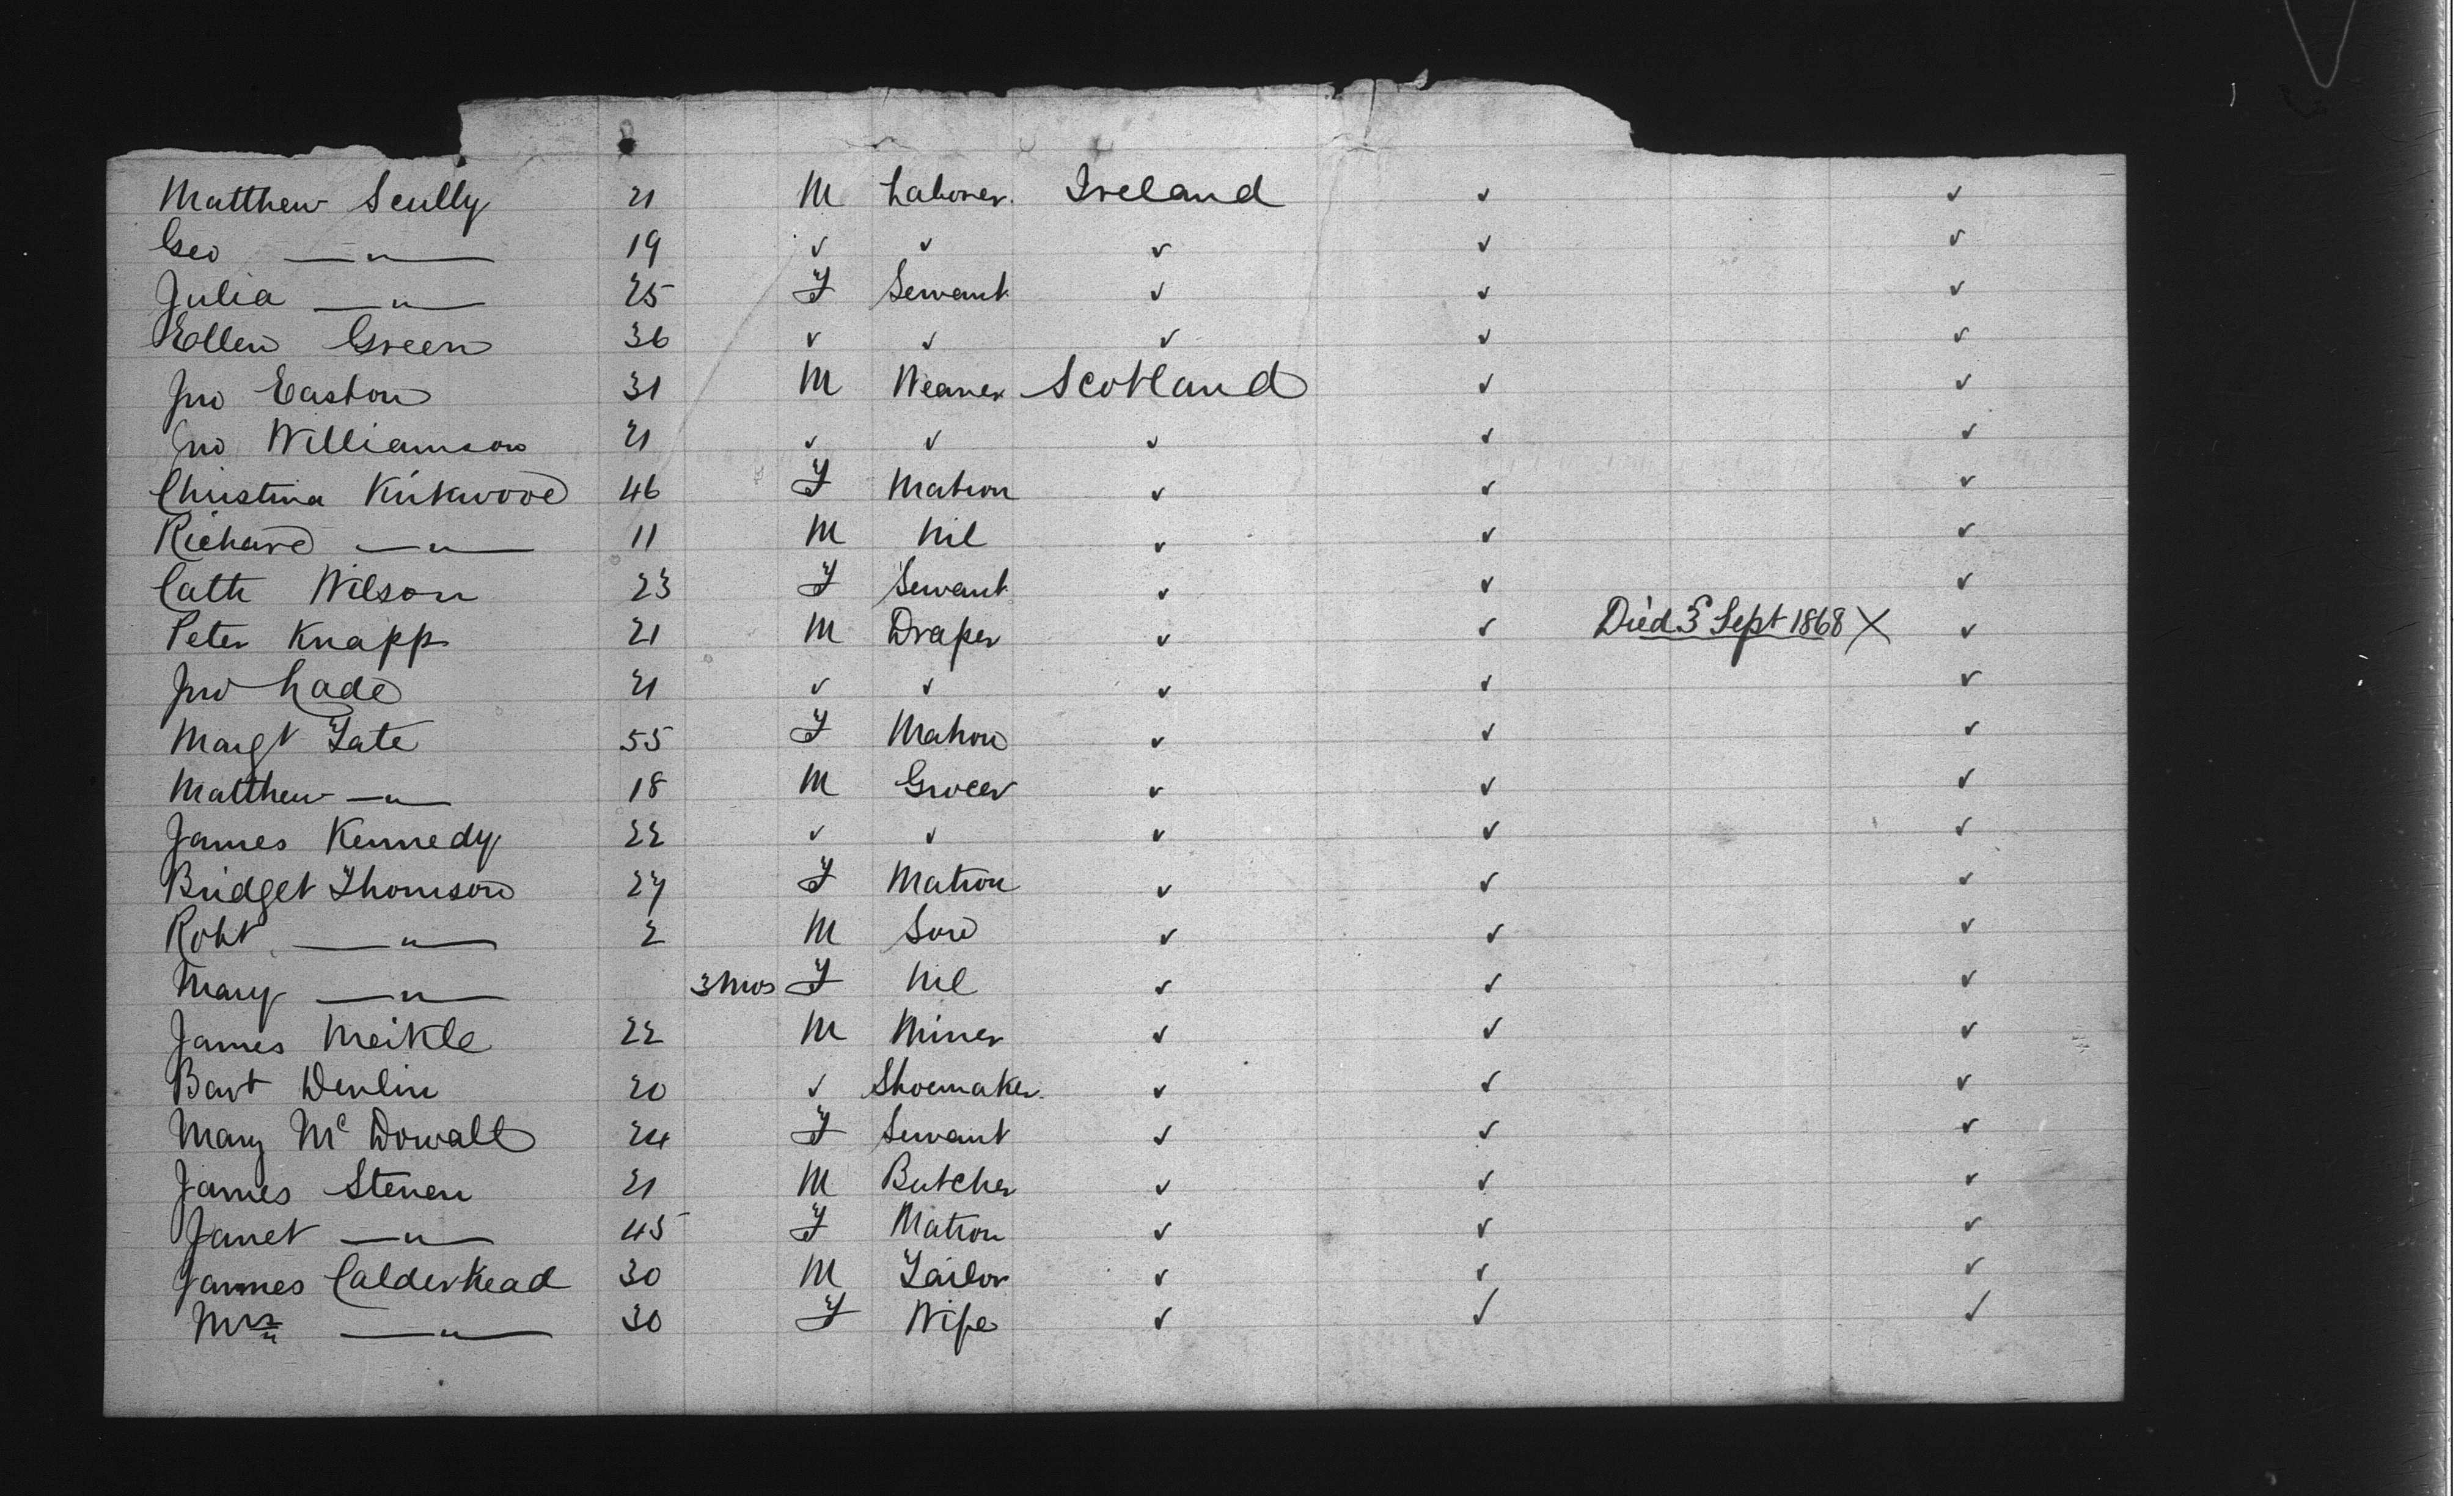 Matthew Scully 21 M Laborer Ireland ✓ ✓
Geo —"— 19 ✓ ✓ ✓ ✓ ✓
Julia —"— 25 F Servant ✓ ✓ ✓
Ellen Green 36 ✓ ✓ ✓ ✓ ✓
Jno Easton 31 M Weaver Scotland ✓ ✓
Jno Williamson 21 ✓ ✓ ✓ ✓ ✓
Christina Kirkwood 46 F Matron ✓ ✓ ✓
Richard —"— 11 M Nil ✓ ✓ ✓
Cath Wilson 23 F Servant ✓ ✓ ✓
Peter Knapp 21 M Draper ✓ ✓ Died 3 Sept 1868 X ✓
Jno Lade 21 ✓ ✓ ✓ ✓ ✓
Margt Tate 55 F Matron ✓ ✓ ✓
Matthew —"— 18 M Grocer ✓ ✓ ✓
James Kennedy 22 ✓ ✓ ✓ ✓ ✓
Bridget Thomson 27 F Matron ✓ ✓ ✓
Robt —"— 2 M Son ✓ ✓ ✓
Mary —"— 3 Mos F Nil ✓ ✓ ✓
James Meikle 22 M Miner ✓ ✓ ✓
Bart Devlin 20 ✓ Shoemaker ✓ ✓ ✓
Mary McDowall 24 F Servant ✓ ✓ ✓
James Steven 21 M Butcher ✓ ✓ ✓
Janet —"— 45 F Matron ✓ ✓ ✓
James Calderhead 30 M Tailor ✓ ✓ ✓
Mrs —"— 30 F Wife ✓ ✓ ✓